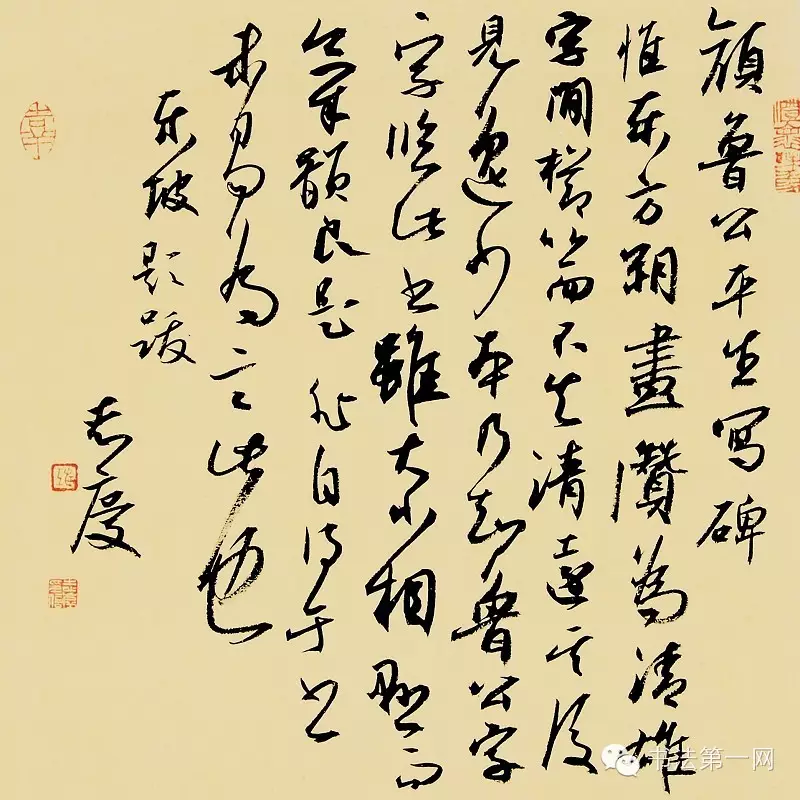 顔魯公平生寫碑
惟東方朔畫讚為清雄
字間櫛比而不失清遠其後
見逸少本乃知魯公字
字臨此書雖大小相懸而
氣韻良是非自得于書
未易為言此也
東坡題跋
书法第一网